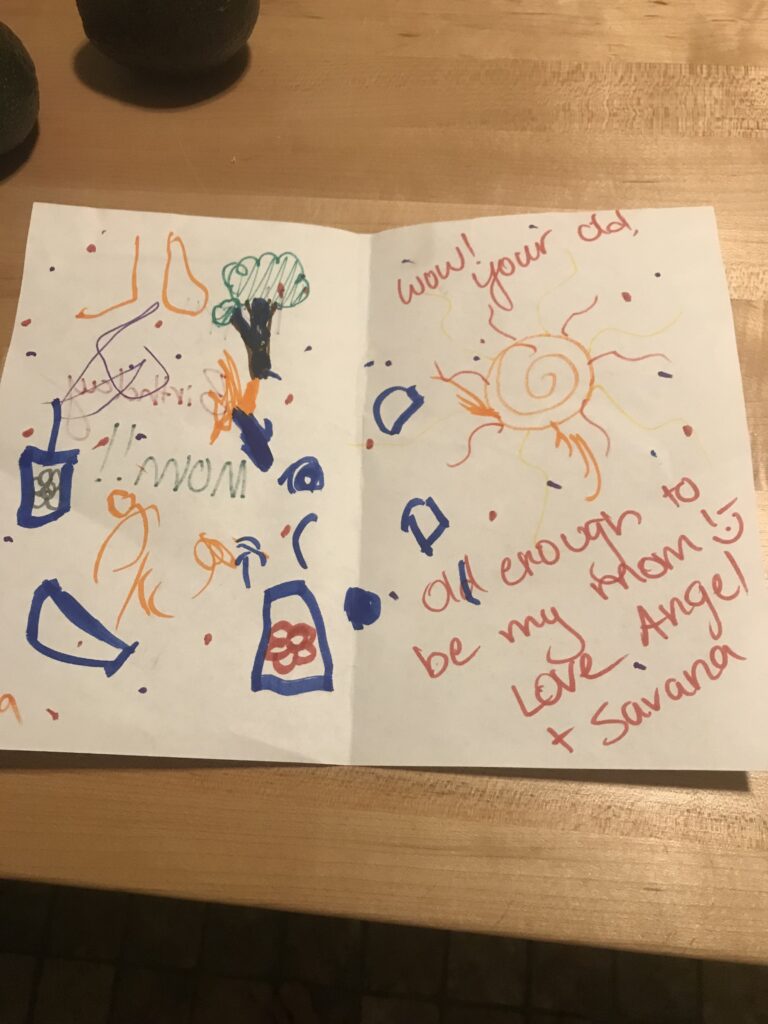 Birthday
MOM!!
wow! your old,
old enough to
be my mom! :)
Love Angel
+ Savana